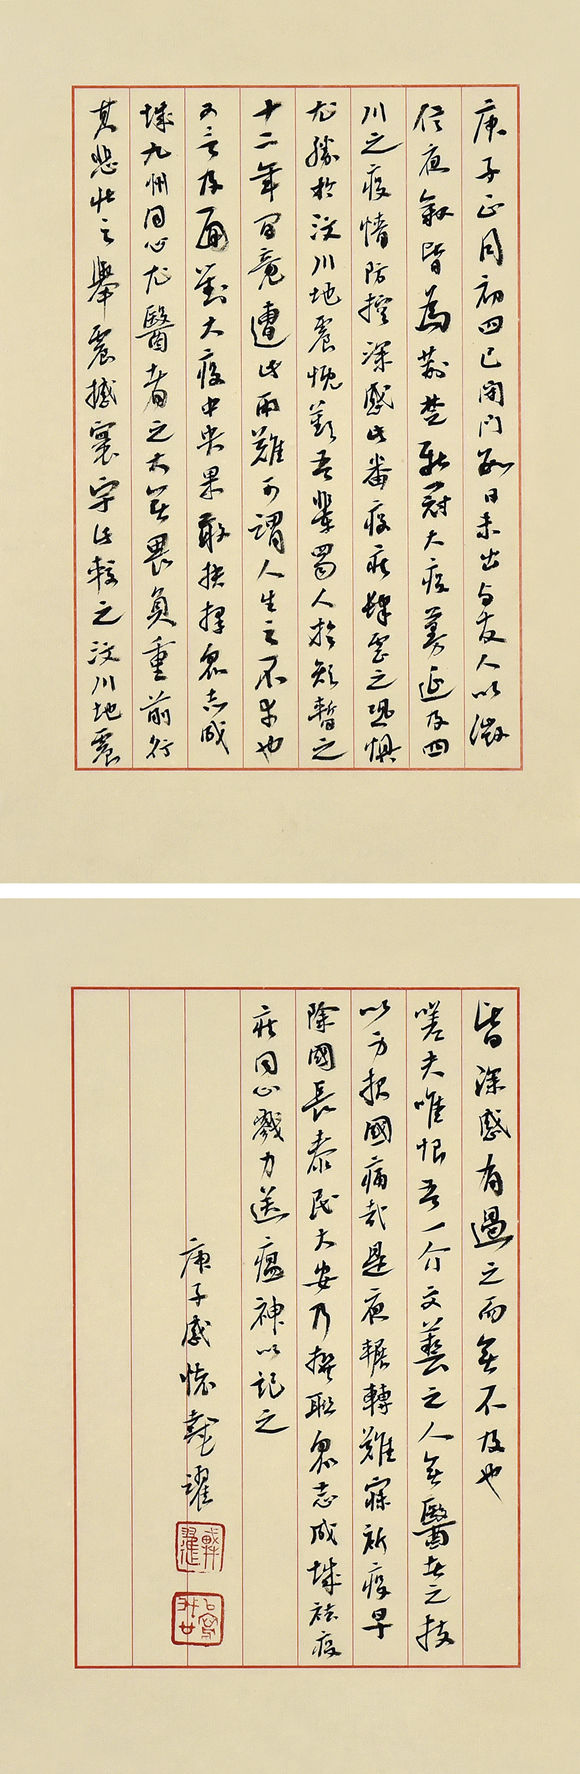 庚子正月初四已閉門數日未出与友人以微
信夜敘皆為荊楚新冠大疫蔓延及四
川之疫情防控深感此番疫疾肆虐之恐懼
尤勝於汶川地震慨歎吾輩蜀人於短暫之
十二年間竟遭此兩難可謂人生之不幸也
又言及面對大疫中央果敢抉擇眾志成
城九州同心尤醫者之大無畏負重前行
其悲壯之舉震撼寰宇比較之汶川地震
皆深感有過之而無不及也
嗟夫唯恨吾一介文藝之人無醫者之技
以方報國痛哉是夜輾轉難寐祈疫早
除國長泰民大安乃撰聯眾志成城祛疫
疾同心戮力送瘟神以記之
庚子感懷 戴躍